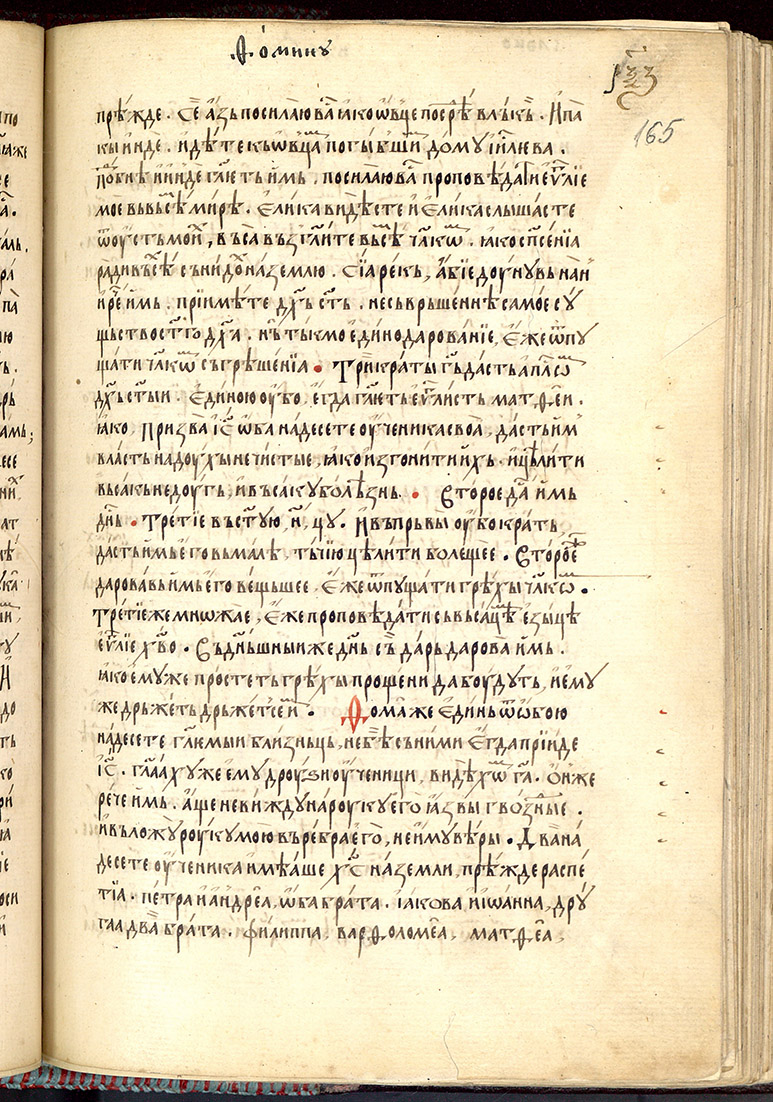 Ѳо́минꙋ
165
прѣ́жде . Се́ а́зь посилаю ва́ ꙗко ѡ́вце посрѣ влькь . И па
кы и́нде . и́дѣте кь ѡ́вца поги́бши до́му і҆и҃лева .
подо́бнѣ и́ и́нде гл҃еть и́мь . посилаю ва́ проповѣдати еѵ҃лїе
мое вь вьсе́мь ми́рѣ . Е҆лика ви́дѣсте и҆ е҆лика слы́шасте
ѿ ꙋсть мои , въса въ́згл҃ите вьсѣ чл҃кѡ . ꙗко сп҃се́нїа
ра́ди вьсѣ сь́нидо на зе́млю . Сїа ре́кь , а҆бїе дꙋ́нꙋвь на ни
и҆ рѐ и́мь . прїимѣ́те дх҃ь ст҃ь . не съвръше́ннѣ са́мое сꙋ
щьство ст҃го дх҃а . нь́ ты́кмо е҆дино дарова́нїе , е҆́же ѿпꙋ
щати чл҃кѡ съгрѣше́нїа • Три́краты г҃ь да́сть а҆п҃лѡ
дх҃ь ст҃ыи . Е҆диною ꙋ́бо , е҆гда гл҃еть е҆ѵ҃листь мат.ѳе́и .
ꙗко , Призва і҆с҃ ѡ҆ба на́десете ꙋ҆ченика своа , да́сть и́м
вла́сть на дꙋхы не чи́стые , ꙗко и҆згонити и́хь . и҆ цѣли́ти
вьса́кь недꙋгь , и҆ въса́кꙋ болѣ́знь . • Е҆торое да́ и́мь
дн҃ь • Тре́тїе въ ст҃ꙋю , н҃ , цꙋ . И҆ въ пръвы ꙋ́бо кра́ть
да́сть и́мь е҆го въ ма́лѣ , тъ́чїю цѣли́ти боле́щее . Е҆торо́е
дарова́вь и́мь е҆го ве́щьшее , е҆́же ѿпꙋща́ти грѣ́хы чл҃кѡ .
Тре́тїе же мнѡжае , е҆́же проповѣ́дати сь вьса́цѣ е҆зы́цѣ
е҆ѵ҃лїе х҃во . Съ дн҃ь́шныи же дн҃ь съ́ да́рь дарова и́мь .
ꙗко е҆мꙋже просте́ть грѣ́хы проще́ни да бꙋ́дꙋть , и҆ е҆мꙋ
же дръже́ть дръже́тсе и • Ѳома́ же е҆ди́нь ѿ ѡ҆бою
на́десете гл҃емыи бли́знць , не бѣ́ съ ни́ми е҆гда прїиде
і҆с҃ . гл҃аахꙋ же е҆мꙋ дрꙋзи ꙋ҆ченици , ви́дѣхѡ г҃а . ѡ҆́н же
ре́че и́мь . а҆́ще не ви́ждꙋ на рꙋкꙋ е҆го ꙗ́звы гво́здные .
и҆ въло́жꙋ рꙋкꙋ мою въ ре́бра е҆го , не и҆мꙋ вѣ́ры . Два на́
десете ꙋ҆ченика и҆мѣ́аше х҃с на земли, прѣ́жде распе́
тїа . пе́тра и҆ а҆ндре́а , ѡ҆ба бра́та . і҆а́кова и҆ і҆ѡа́нна , дрꙋ
гаа два́ бра́та . фили́ппа , вар.ѳоломе́а , мат.ѳе́а ,